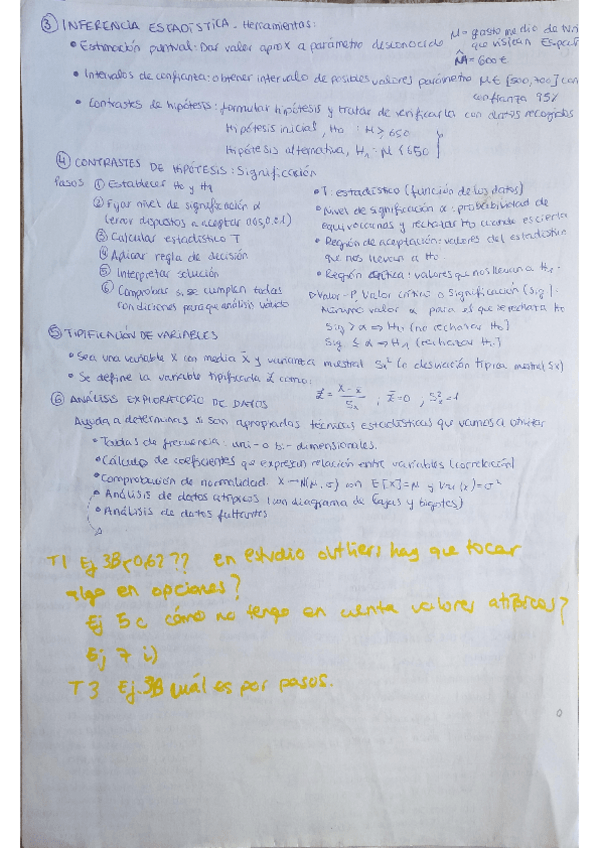 ③ INFERENCIA ESTADÍSTICA - Herramientas:
• Estimación puntual: Dar valor aprox a parámetro desconocido
μ = gasto medio de
que visitan España
μ̂ = 600 €
• Intervalos de confianza: obtener intervalo de posibles valores parámetro μ ∈ [500,700] con
confianza 95%
• Contrastes de hipótesis: formular hipótesis y tratar de verificarla con datos recogidos
Hipótesis inicial, H₀ : μ ≥ 650
Hipótesis alternativa, H₁ = μ < 650
④ CONTRASTES DE HIPÓTESIS: Significación
Pasos ① Establecer H₀ y H₁
② Fijar nivel de significación α
(error dispuestos a aceptar 0.05, 0.01)
③ Calcular estadístico T
④ Aplicar regla de decisión
⑤ Interpretar solución
⑥ Comprobar si se cumplen todas
condiciones para que análisis válido
• T: estadístico (función de los datos)
• Nivel de significación α: probabilidad de
equivocarnos y rechazar H₀ cuando es cierta
• Región de aceptación: valores del estadístico
que nos llevan a H₀.
• Región crítica: valores que nos llevan a H₁.
▷ Valor-P, Valor crítico o Significación (Sig):
Mínimo valor α para el que se rechaza H₀
Sig > α ⇒ H₀ (no rechazar H₀)
Sig ≤ α ⇒ H₁ (rechazar H₀)
⑤ TIPIFICACIÓN DE VARIABLES
• Sea una variable X con media x̄ y varianza muestral Sx² (o desviación típica muestral Sx)
• Se define la variable tipificada Z como: Z = (X - x̄)/Sx , z̄ = 0 , S²z = 1
⑥ ANÁLISIS EXPLORATORIO DE DATOS
Ayuda a determinar si son apropiadas técnicas estadísticas que vamos a utilizar
• Tablas de frecuencia: uni- o bi- dimensionales.
• Cálculo de coeficientes que expresan relación entre variables (correlación)
• Comprobación de normalidad. X → N(μ, σ) con E[X] = μ y Var(x) = σ²
• Análisis de datos atípicos (con diagrama de Cajas y bigotes)
• Análisis de datos faltantes
T1 Ej 3B < 0,6? ?? En estudio outliers hay que tocar
algo en opciones?
Ej 5c cómo no tengo en cuenta valores atípicos?
Ej 7 i)
T3 Ej. 3B cuál es por pasos.